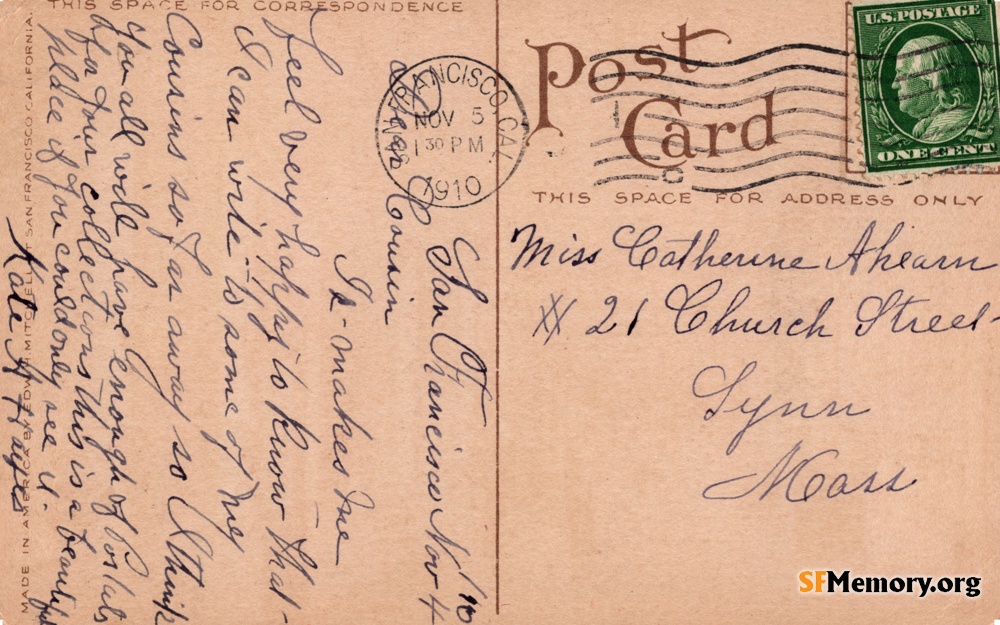 THIS SPACE FOR CORRESPONDENCE
San Francisco Nov 4 '10
Dear Cousin
It makes me
feel very happy to know that
I can write to some of my
Cousins so far away so I think
you all will have enough of Postals
for your collections this is a beautiful
place if you could only see it.
Kate A Hayes
MADE IN AMERICA BY EDW. H. MITCHELL AT SAN FRANCISCO, CALIFORNIA.
Post
Card
SAN FRANCISCO, CAL.
NOV 5
1 30 PM
1910
U.S. POSTAGE
ONE CENT
THIS SPACE FOR ADDRESS ONLY
Miss Catherine Ahearn
# 21 Church Street
Lynn
Mass
SFMemory.org